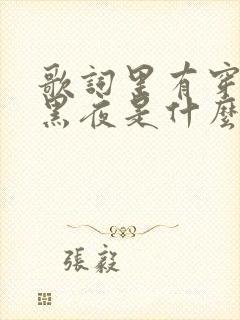 歌詞里有穿
黑夜是什麼
張毅